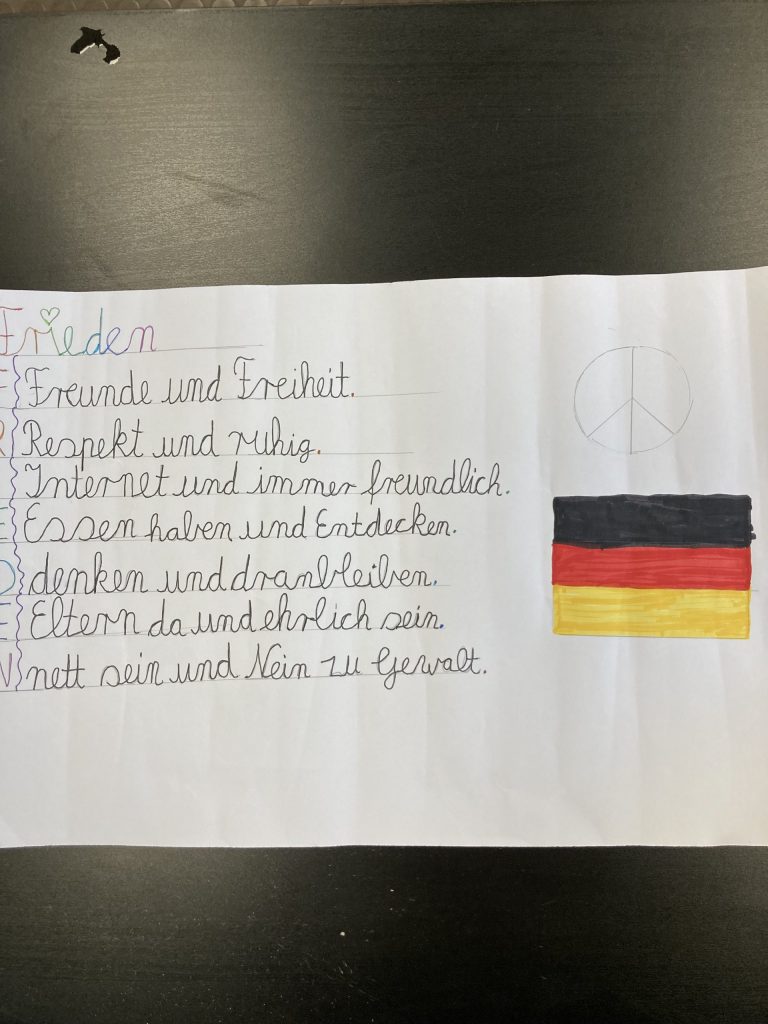 Frieden
F Freunde und Freiheit.
R Respekt und ruhig.
Internet und immer freundlich.
E Essen haben und Entdecken.
D denken und dranbleiben.
E Eltern da und ehrlich sein.
N nett sein und Nein zu Gewalt.